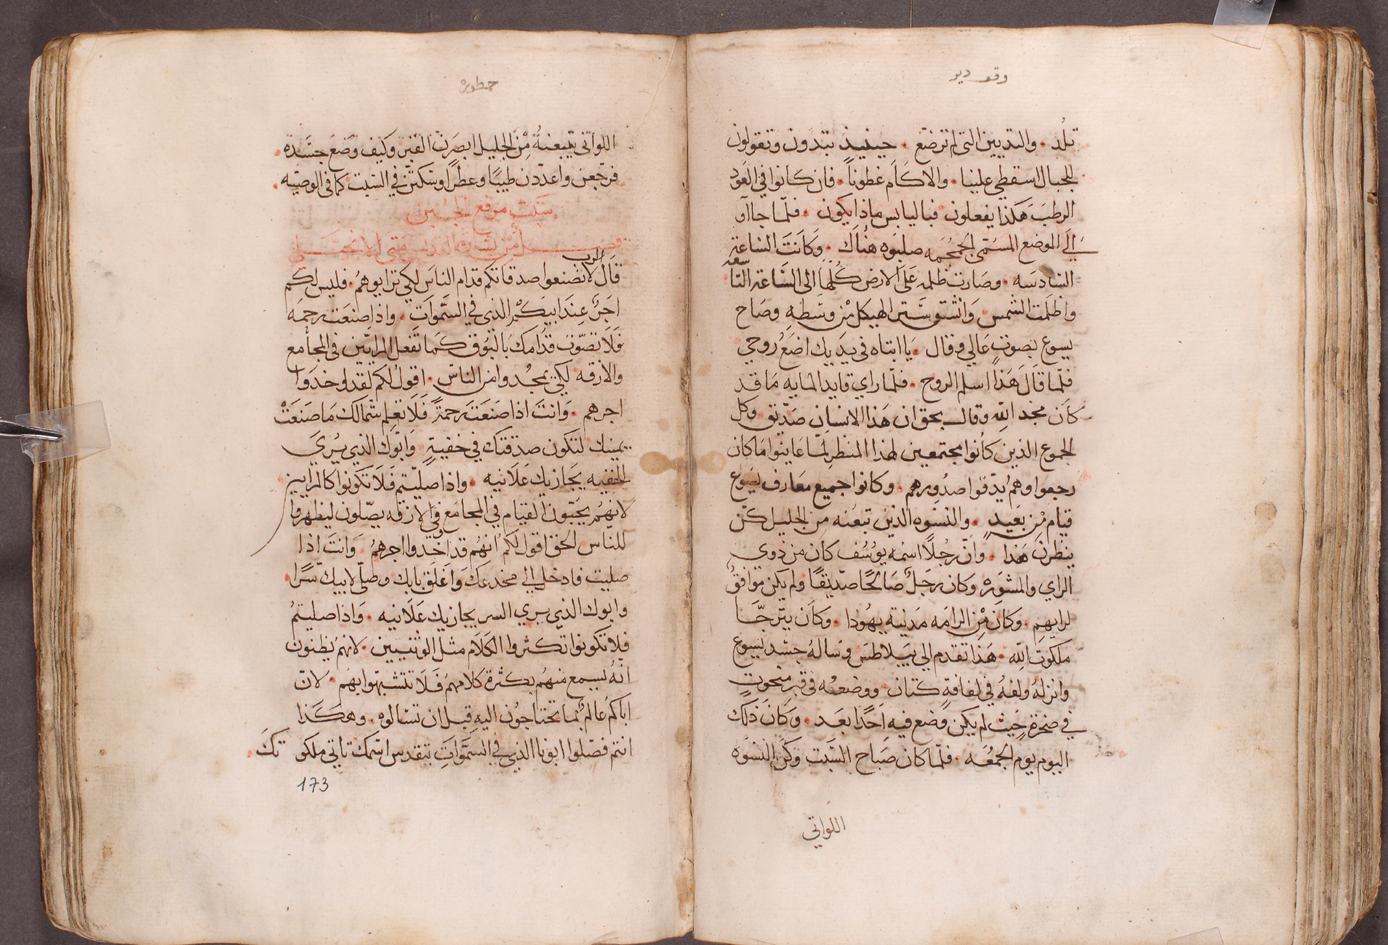 وقف دير
تلد والثديين التي لم ترضع حينيذ تبتدون وتقولون
للجبال اسقطي علينا والاكام غطونا فان كانوا في العود
الرطب هكذا يفعلون فباليابس ماذا يكون فلما جااو
الي الموضع المسمى الجمجمه صلبوه هناك وكانت الساعة
السادسه وصارت ظلمه على الارض كلها الى الساعة التاسعه
واظلمت الشمس وانشق ستر الهيكل من وسطه وصاح
يسوع بصوت عالي وقال يا ابتاه في يديك اضع روحي
فلما قال هذا اسلم الروح فلما راي قايد المايه ما قد
كان مجد الله وقال بحق ان هذا الانسان صديق وكل
الجموع الذين كانوا مجتمعين لهذا المنظر لما عاينوا ما كان
رجعوا وهم يدقوا صدورهم وكانوا جميع معارف يسوع
قيام من بعيد والنسوه الذين تبعنه من الجليل كن
ينظرن هذا وان رجلا اسمه يوسف كان من ذوي
الراي والمشوره وكان رجل صالحا صديقا ولم يكن موافق
لرايهم وكان من الرامه مدينة يهودا وكان يترجا
ملكوت الله هذا تقدم الي بيلاطس وساله جسد يسوع
وانزله ولفه في لفافة كتان ووضعه في قبر منحوت
في صخرة حيث لم يكن وضع فيه احدا بعد وكان ذلك
اليوم يوم الجمعه فلما كان صباح السبت وكن النسوه
اللواتي
اللواتي تبعنه من الجليل ابصرن القبر وكيف وضع جسده
فرجعن واعددن طيبا وعطرا وسكتن في السبت كما في الوصيه
سبت مرفع الجبن
قال الرب لا تصنعوا صدقاتكم قدام الناس لكي ترايوهم فليس لكم
اجر عند ابيكم الذي في السموات واذا صنعت رحمه
فلا تصوت قدامك بالبوق كما تفعل المرايين في المجامع
والازقه لكي يمجدوا من الناس اقول لكم لقد اخدوا
اجرهم وانت اذا صنعت رحمة فلا تعلم شمالك ما صنعت
يمينك لتكون صدقتك في خفية وابوك الذي يري
الخفيه يجازيك علانيه واذا صليتم فلا تكونوا كالمرايين
لانهم يحبون القيام في المجامع وفي الازقه يصلون ليظهروا
للناس الحق اقول لكم انهم قد اخدوا اجرهم وانت اذا
صليت فادخل الي مخدعك واغلق بابك وصلي لابيك سرا
وابوك الذي يري السر يجازيك علانيه واذا صليتم
فلا تكونوا تكثروا الكلام مثل الوثنيين لانهم يظنون
انه يسمع منهم بكثرة كلامهم فلا تتشبهوا بهم لان
اباكم عالم بما تحتاجون اليه قبل ان تسالوه وهكذا
انتم فصلوا ابونا الذي في السموات يتقدس اسمك تاتي ملكوتك
173